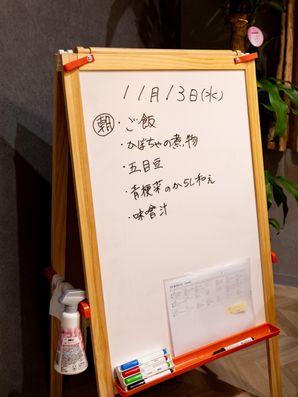 11月13日(水)
朝 ・ご飯
・かぼちゃの煮物
・五目豆
・青梗菜のからし和え
・味噌汁